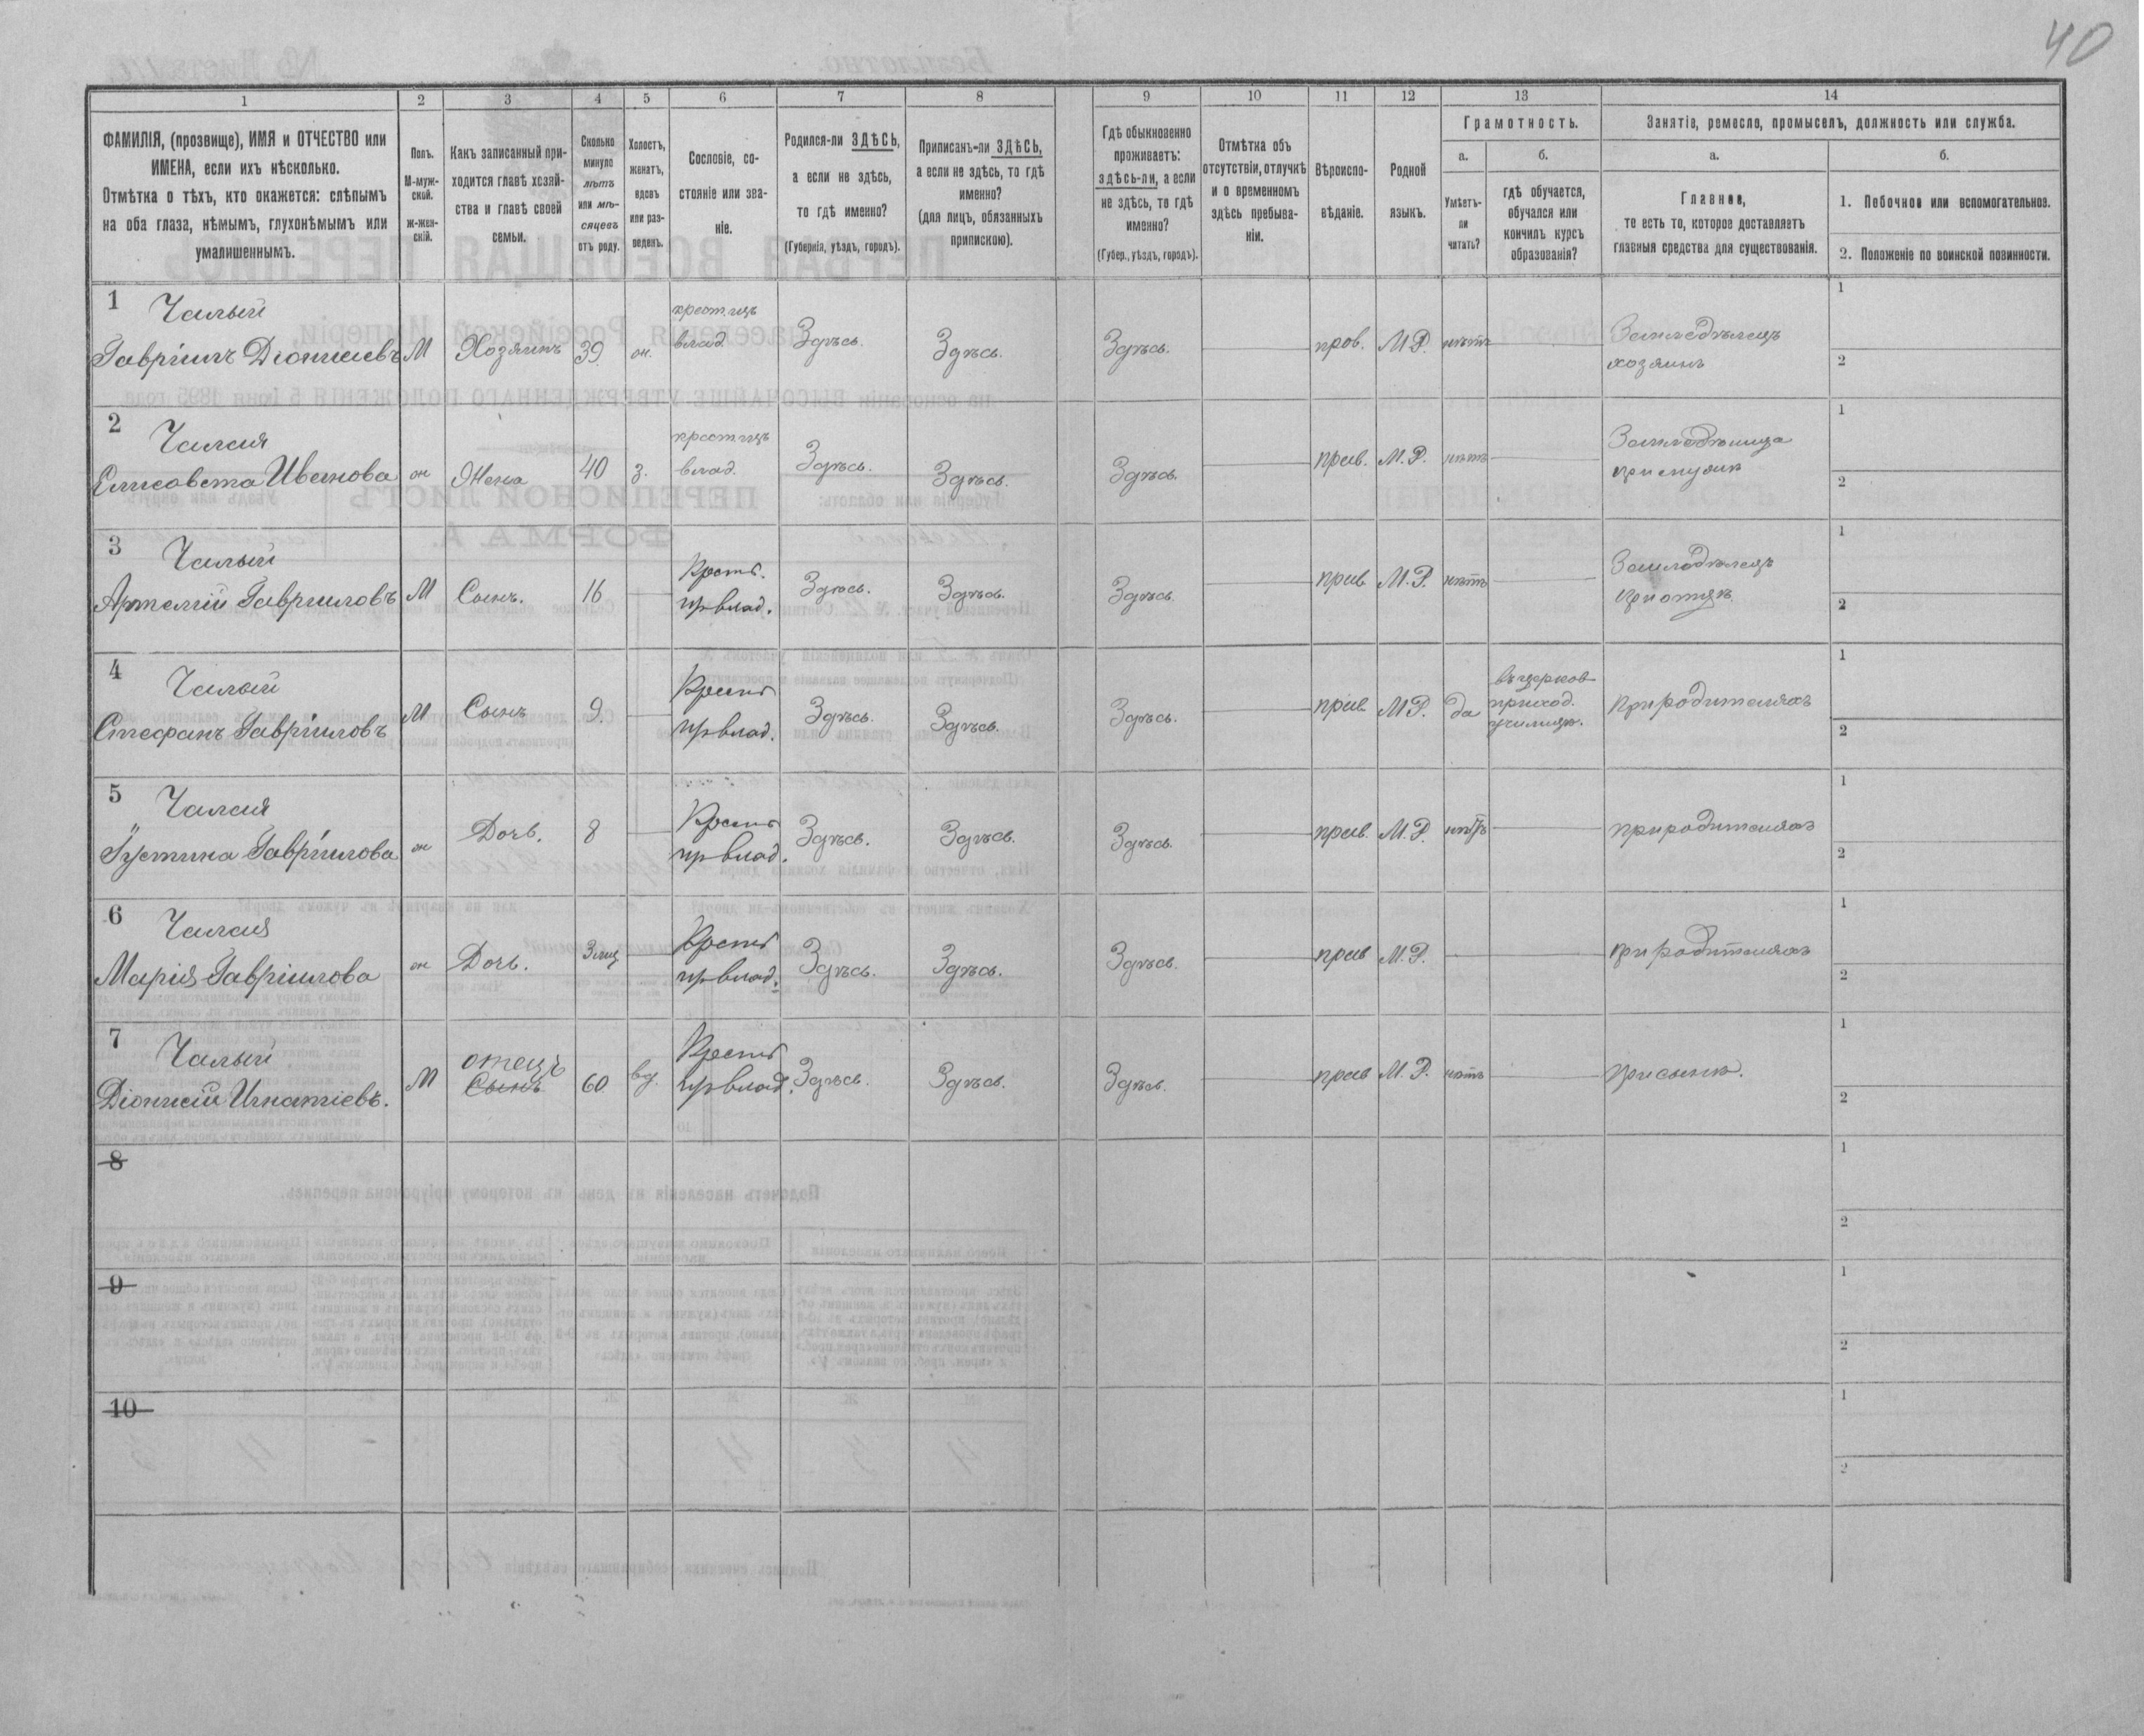 40
1 2 3 4 5 6 7 8 9 10 11 12 13 14
ФАМИЛІЯ, (прозвище), ИМЯ и ОТЧЕСТВО или
ИМЕНА, если ихъ нѣсколько.
Отмѣтка о тѣхъ, кто окажется: слѣпымъ
на оба глаза, нѣмымъ, глухонѣмымъ или
умалишеннымъ.
Полъ.
М-муж-
ской.
ж-жен-
скій.
Какъ записанный при-
ходится главѣ хозяй-
ства и главѣ своей
семьи.
Сколько
минуло
лѣтъ
или мѣ-
сяцевъ
отъ роду.
Холостъ,
женатъ,
вдовъ
или раз-
веденъ.
Сословіе, со-
стояніе или зва-
ніе.
Родился-ли ЗДѢСЬ,
а если не здѣсь,
то гдѣ именно?
(Губернія, уѣздъ, городъ).
Приписанъ-ли ЗДѢСЬ,
а если не здѣсь, то гдѣ
именно?
(для лицъ, обязанныхъ
припискою).
Гдѣ обыкновенно
проживаетъ:
здѣсь-ли, а если
не здѣсь, то гдѣ
именно?
(Губер., уѣздъ, городъ).
Отмѣтка объ
отсутствіи, отлучкѣ
и о временномъ
здѣсь пребыва-
ніи.
Вѣроиспо-
вѣданіе.
Родной
языкъ.
Грамотность.
а.
Умѣетъ-
ли
читать?
б.
гдѣ обучается,
обучался или
кончилъ курсъ
образованія?
Занятіе, ремесло, промыселъ, должность или служба.
а.
Главное,
то есть то, которое доставляетъ
главныя средства для существованія.
б.
1. Побочное или вспомогательное.
2. Положеніе по воинской повинности.
1 Чалый
Гавріилъ Діонисіевъ М Хозяинъ 39 ж.
влад. Здѣсь. Здѣсь. Здѣсь. прав. М.Р. нѣтъ Земледѣлецъ
хозяинъ
1
2
2 Чалая
Елисавета Иванова ж Жена 40 з.
влад. Здѣсь. Здѣсь. Здѣсь. прав. М.Р. нѣтъ
при мужѣ
1
2
3 Чалый
Артемій Гавриловъ М Сынъ. 16 Крест.
влад. Здѣсь. Здѣсь. Здѣсь. прав. М.Р. нѣтъ Земледѣлецъ
при отцѣ.
1
2
4 Чалый
Стефанъ Гавріиловъ М Сынъ 9. Крест
влад. Здѣсь. Здѣсь. Здѣсь. прав. М.Р. да
въ церков-
приход.
училищѣ.
при родителяхъ
1
2
5 Чалая
Іустина Гавріилова ж Дочь. 8 Крест
влад. Здѣсь. Здѣсь. Здѣсь. прав. М.Р. нѣтъ при родителяхъ
1
2
6 Чалая
Марія Гавріилова ж Дочь. 3 мц Крест
влад. Здѣсь. Здѣсь. Здѣсь. прав М.Р. при родителяхъ
1
2
7 Чалый
Діонисій Игнатіевъ. М отецъ
Сынъ 60 вд. Крест
влад. Здѣсь. Здѣсь. Здѣсь. прав М.Р. нѣтъ при сынѣ.
1
2
8
1
2
9
1
2
10
1
2